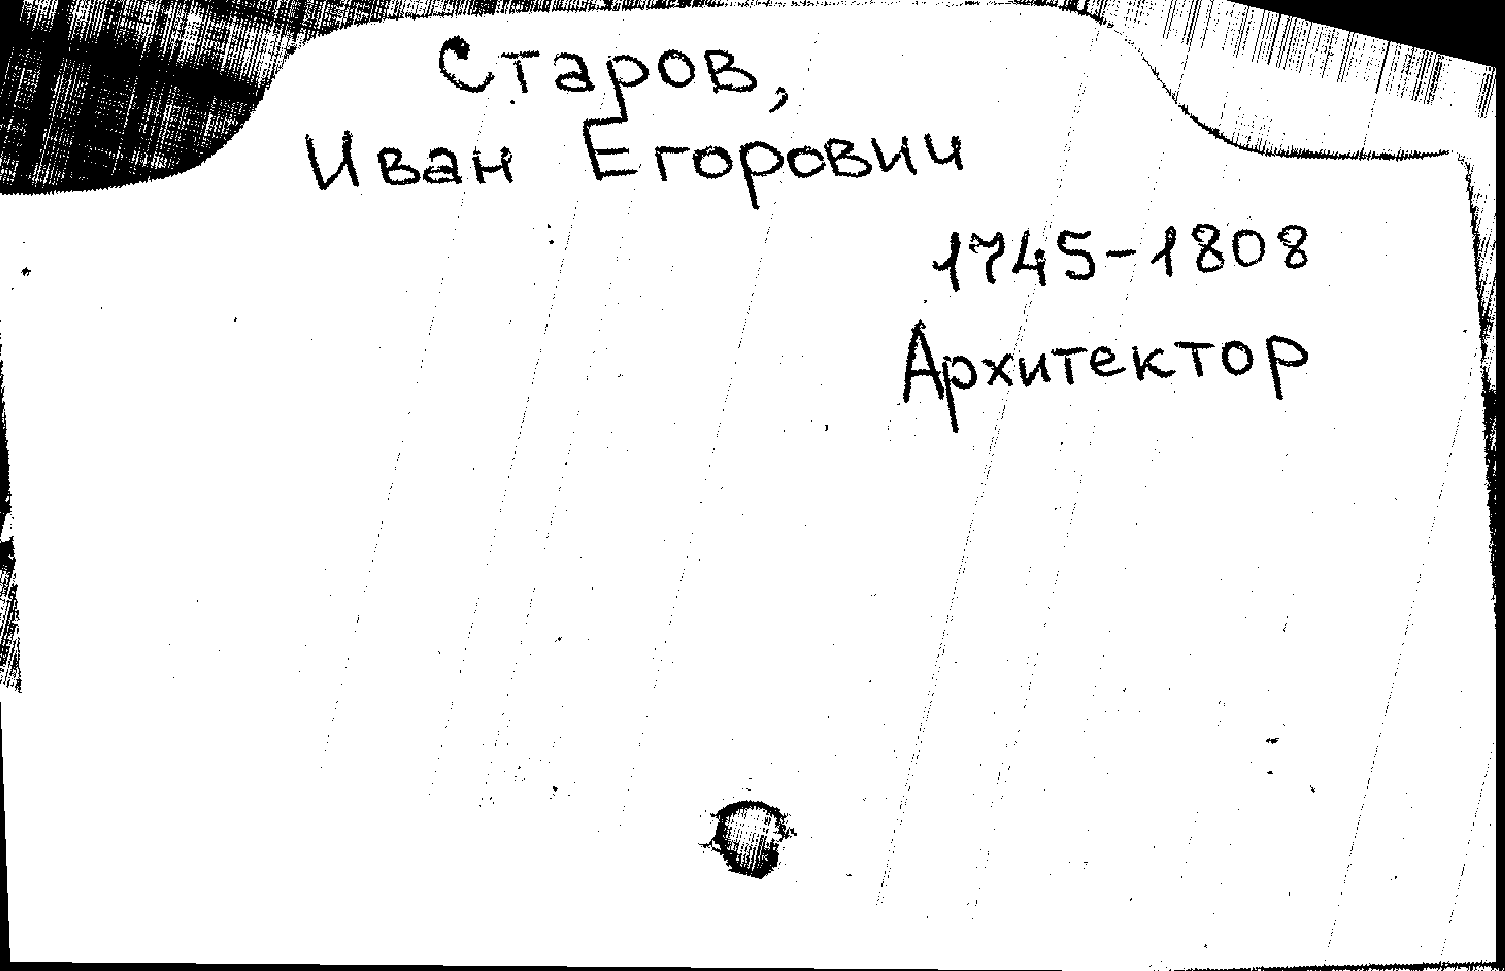 Старов,
Иван Егорович
1745-1808
Архитектор